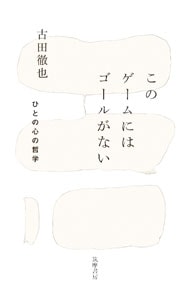 この
ゲームには
ゴールがない
古田徹也
ひとの心の哲学
筑摩書房